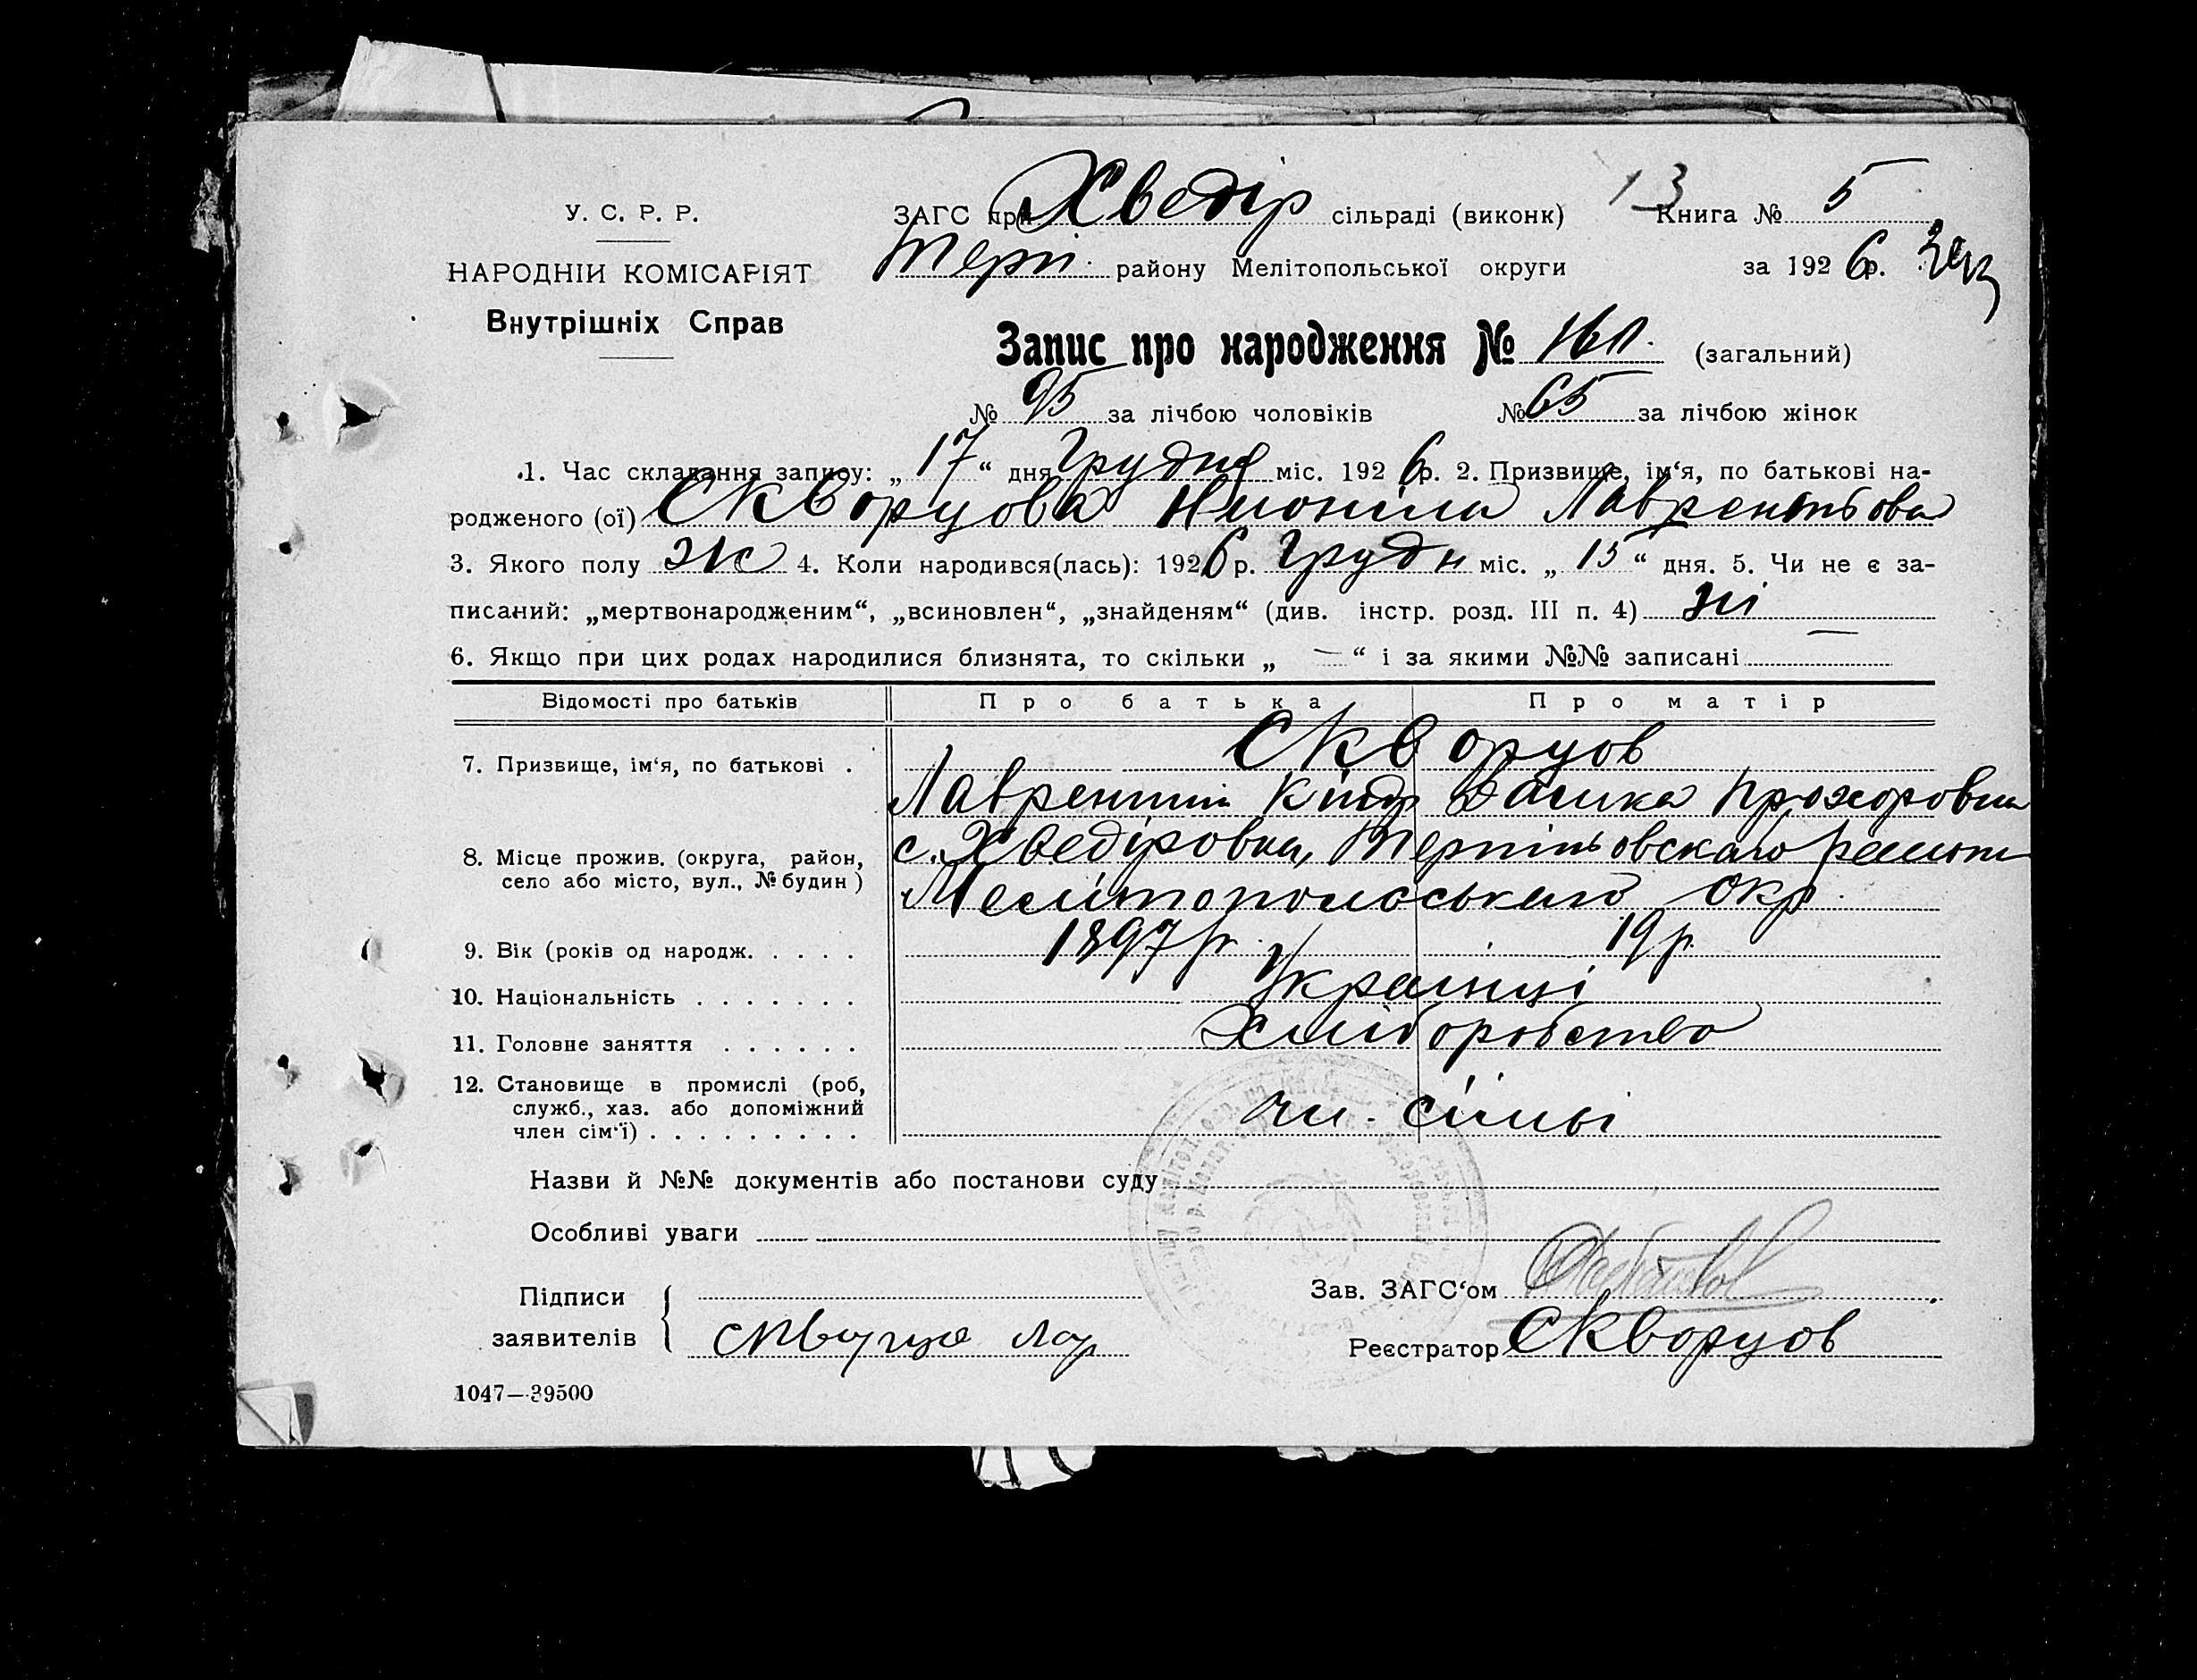 У. С. Р. Р.
НАРОДНІЙ КОМІСАРІЯТ
Внутрішніх Справ
ЗАГС при Хведір сільраді (виконк)
13 Книга № 5
Терп. району Мелітопольської округи
за 1926 р.
Запис про народження № 161. (загальний)
№ 95 за лічбою чоловіків № 65 за лічбою жінок
1. Час складання запису: „17“ дня Грудня міс. 1926 р. 2. Призвище, ім‘я, по батькові на-
родженого (ої) Скворцова Нионіла Лаврентьова
3. Якого полу ж 4. Коли народився(лась): 1926 р. Грудн міс. „15“ дня. 5. Чи не є за-
писаний: „мертвонародженим“, „всиновлен“, „знайденям“ (див. інстр. розд. III п. 4) ні
6. Якщо при цих родах народилися близнята, то скільки „—“ і за якими №№ записані —
Відомості про батьків Про батька Про матір
7. Призвище, ім‘я, по батькові . Скворцов
Лаврентий Прохоровна
8. Місце прожив. (округа, район,
село або місто, вул., № будин)
с. Хведіровка, Терпіньовскаго
Мелітопольського окр.
9. Вік (років од народж. . . . . 1897 р. 19 р.
10. Національність . . . . . . . Українці
11. Головне заняття . . . . . . Хліборобство
12. Становище в промислі (роб,
служб., хаз. або допоміжний
член сім‘ї) . . . . . . . . . чл. сімьі
Назви й №№ документів або постанови суду
Особливі уваги
Підписи
заявителів
Зав. ЗАГС‘ом
Реєстратор Скворцов
1047—39500